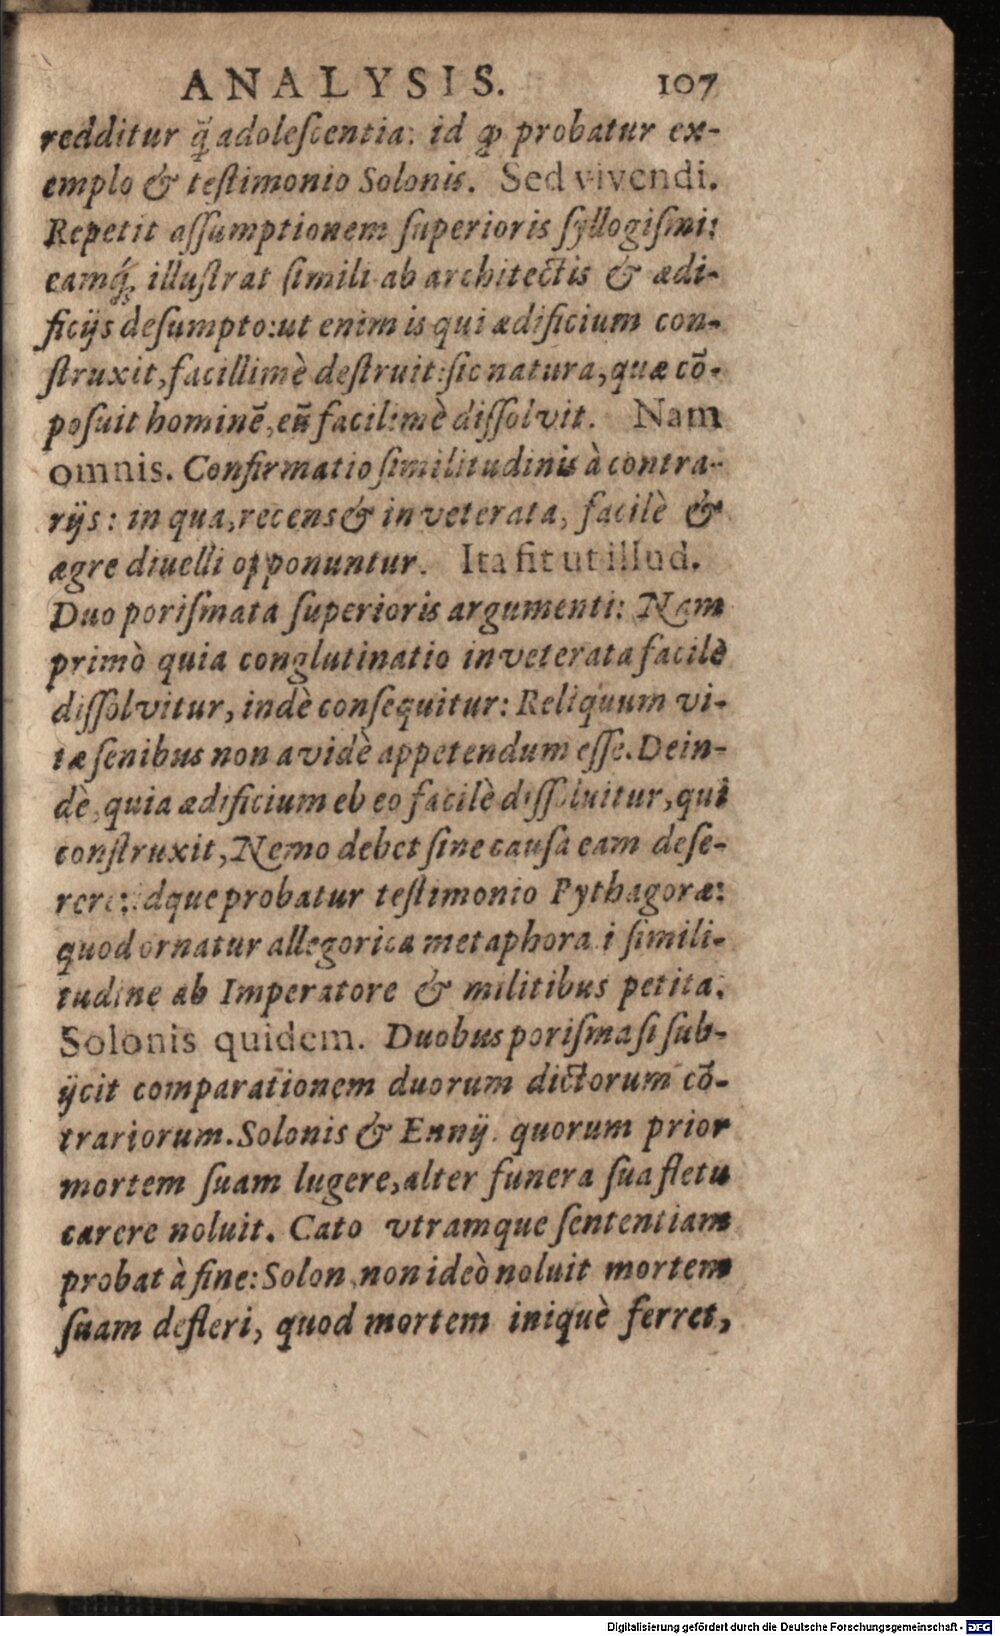 ANALYSIS. 107
redditur q̃ adoleſcentia: id ꝙ probatur ex-
emplo & teſtimonio Solonis. Sed vivendi.
Repetit aſſumptionem ſuperioris ſyllogiſmi:
eamq́ꝫ illuſtrat ſimili ab architectis & ædi-
ficijs deſumpto: ut enim is qui ædificium con-
ſtruxit, facillimè deſtruit: ſic natura, quæ cō-
poſuit hominē, eũ facilimè diſſolvit. Nam
omnis. Confirmatio ſimilitudinis à contra-
rijs: in qua, recens & inveterata, facilè &
ægre diuelli opponuntur. Ita fit ut illud.
Duo poriſmata ſuperioris argumenti: Nam
primò quia conglutinatio inveterata facilè
diſſolvitur, indè conſequitur: Reliquum vi-
tæ ſenibus non avidè appetendum eſſe. Dein-
dè, quia ædificium eb eo facilè diſſoluitur, qui
conſtruxit, Nemo debet ſine cauſa eam deſe-
rere: idque probatur teſtimonio Pythagoræ:
quod ornatur allegorica metaphora i ſimili-
tudine ab Imperatore & militibus petita.
Solonis quidem. Duobus poriſmaſi ſub-
ijcit comparationem duorum dictorum cō-
trariorum. Solonis & Ennij. quorum prior
mortem ſuam lugere, alter funera ſua fletu
carere noluit. Cato vtramque ſententiam
probat à fine: Solon, non ideò noluit mortem
ſuam defleri, quod mortem iniquè ferret,
Digitalisierung gefördert durch die Deutsche Forschungsgemeinschaft - DFG